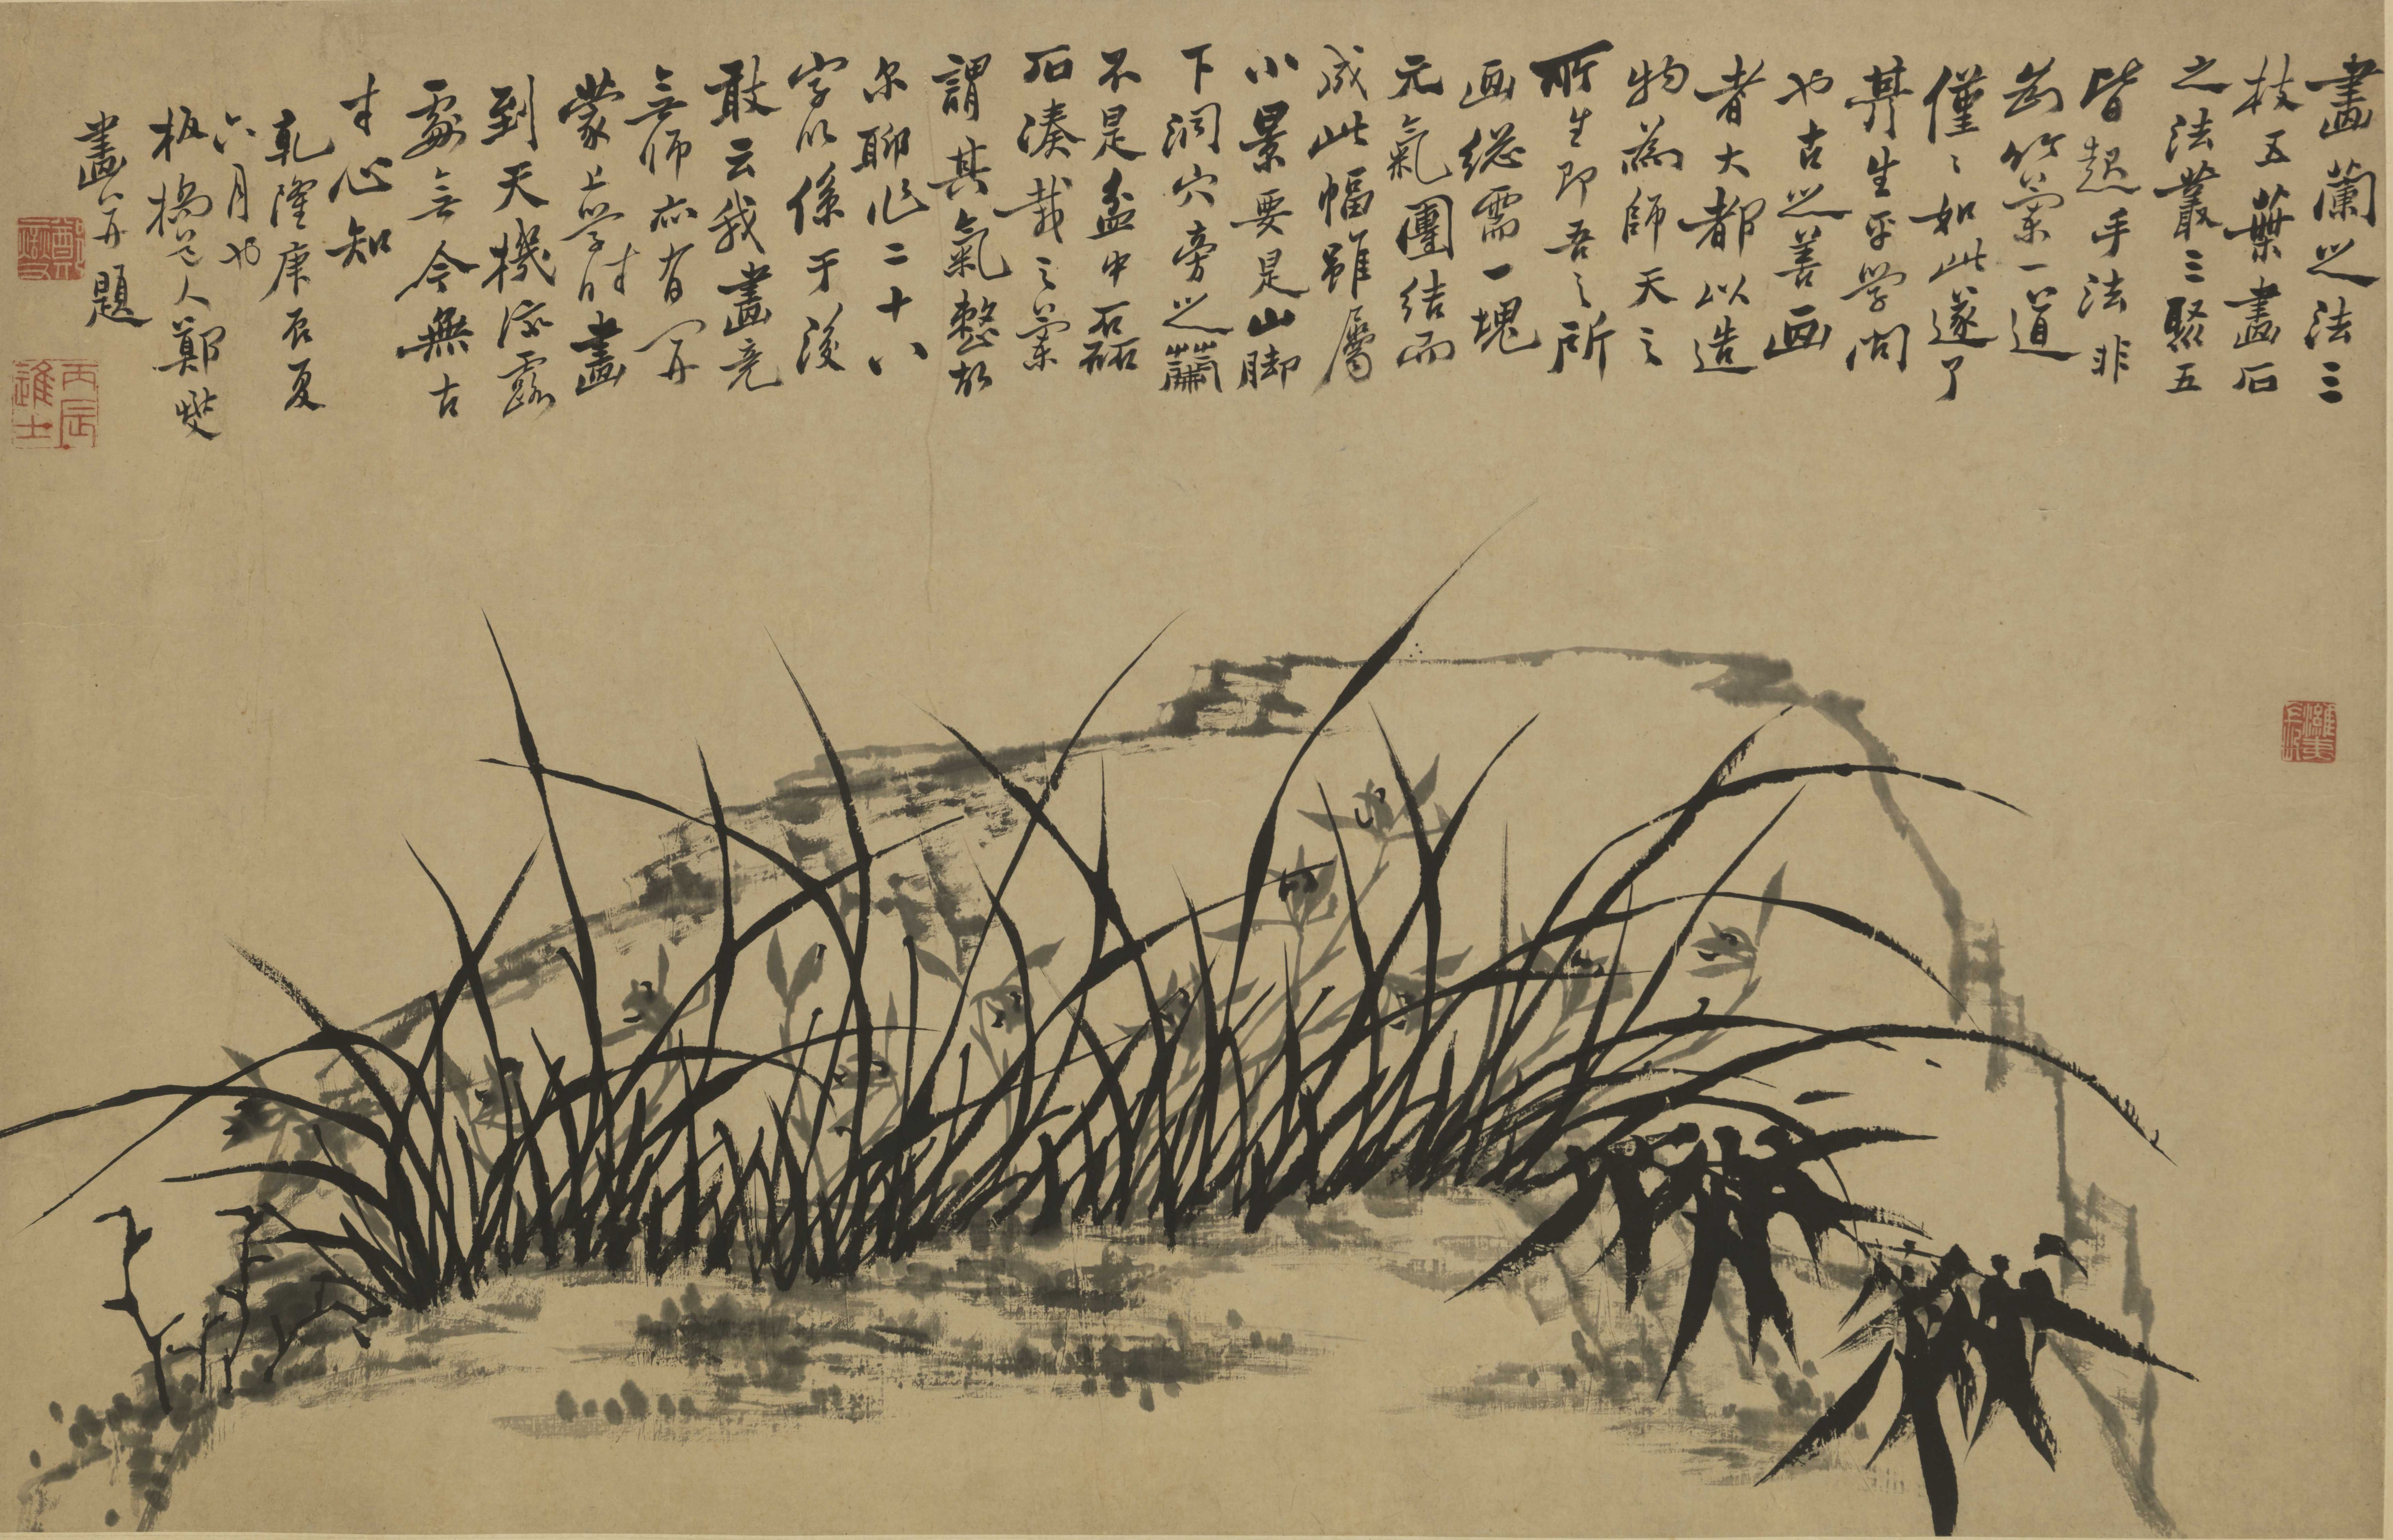 畫蘭之法三
枝五葉畫石
之法叢三聚五
皆起手法非
為竹蘭一道
僅〻如此遂了
其生平學問
也古之善画
者大都以造
物為師天之
所生即吾之所
画総需一塊
元氣團結而
成此幅雖屬
小景要是山脚
下洞穴旁之蘭
不是盆中磊
石湊栽之蘭
謂其氣整故
尔聊作二十八
字以係于後
敢云我畫竟
無師亦有開
蒙上學時畫
到天機流露
處無今無古
寸心知
乾隆庚辰夏
六月也
板橋道人鄭燮
畫并題
丙辰進士